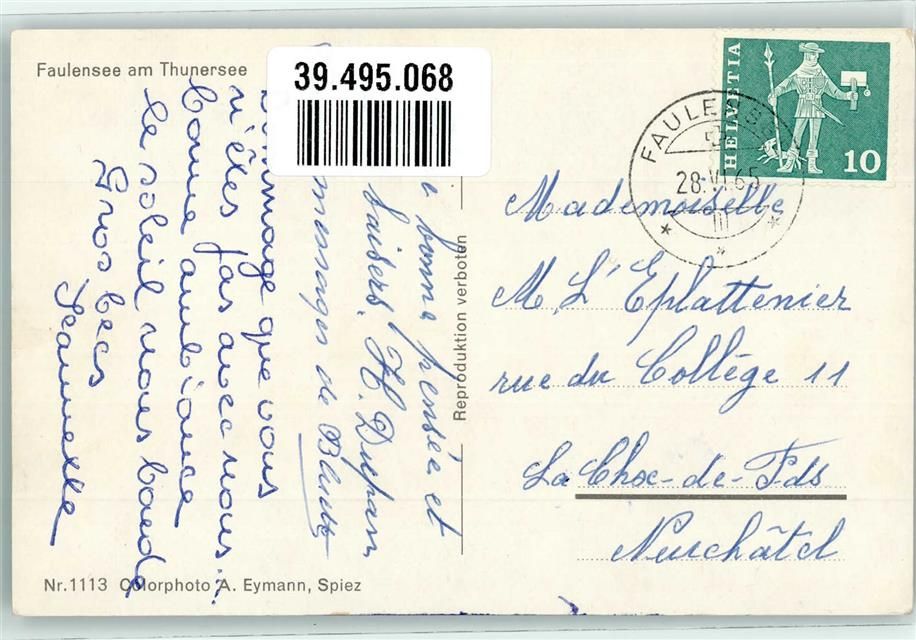 Faulensee am Thunersee
39.495.068
HELVETIA
10
FAULENSEE
28.VI.65
Mademoiselle
M. L'Eplattenier
rue du Collège 11
La Chx-de-Fds
Neuchâtel
bonne pensée et
baisers. H. Dupan
messages de
que vous
n'êtes pas avec nous.
bonne ambiance
le soleil nous boude
Gros becs
Jeannette
Reproduktion verboten
Nr.1113 Colorphoto A. Eymann, Spiez